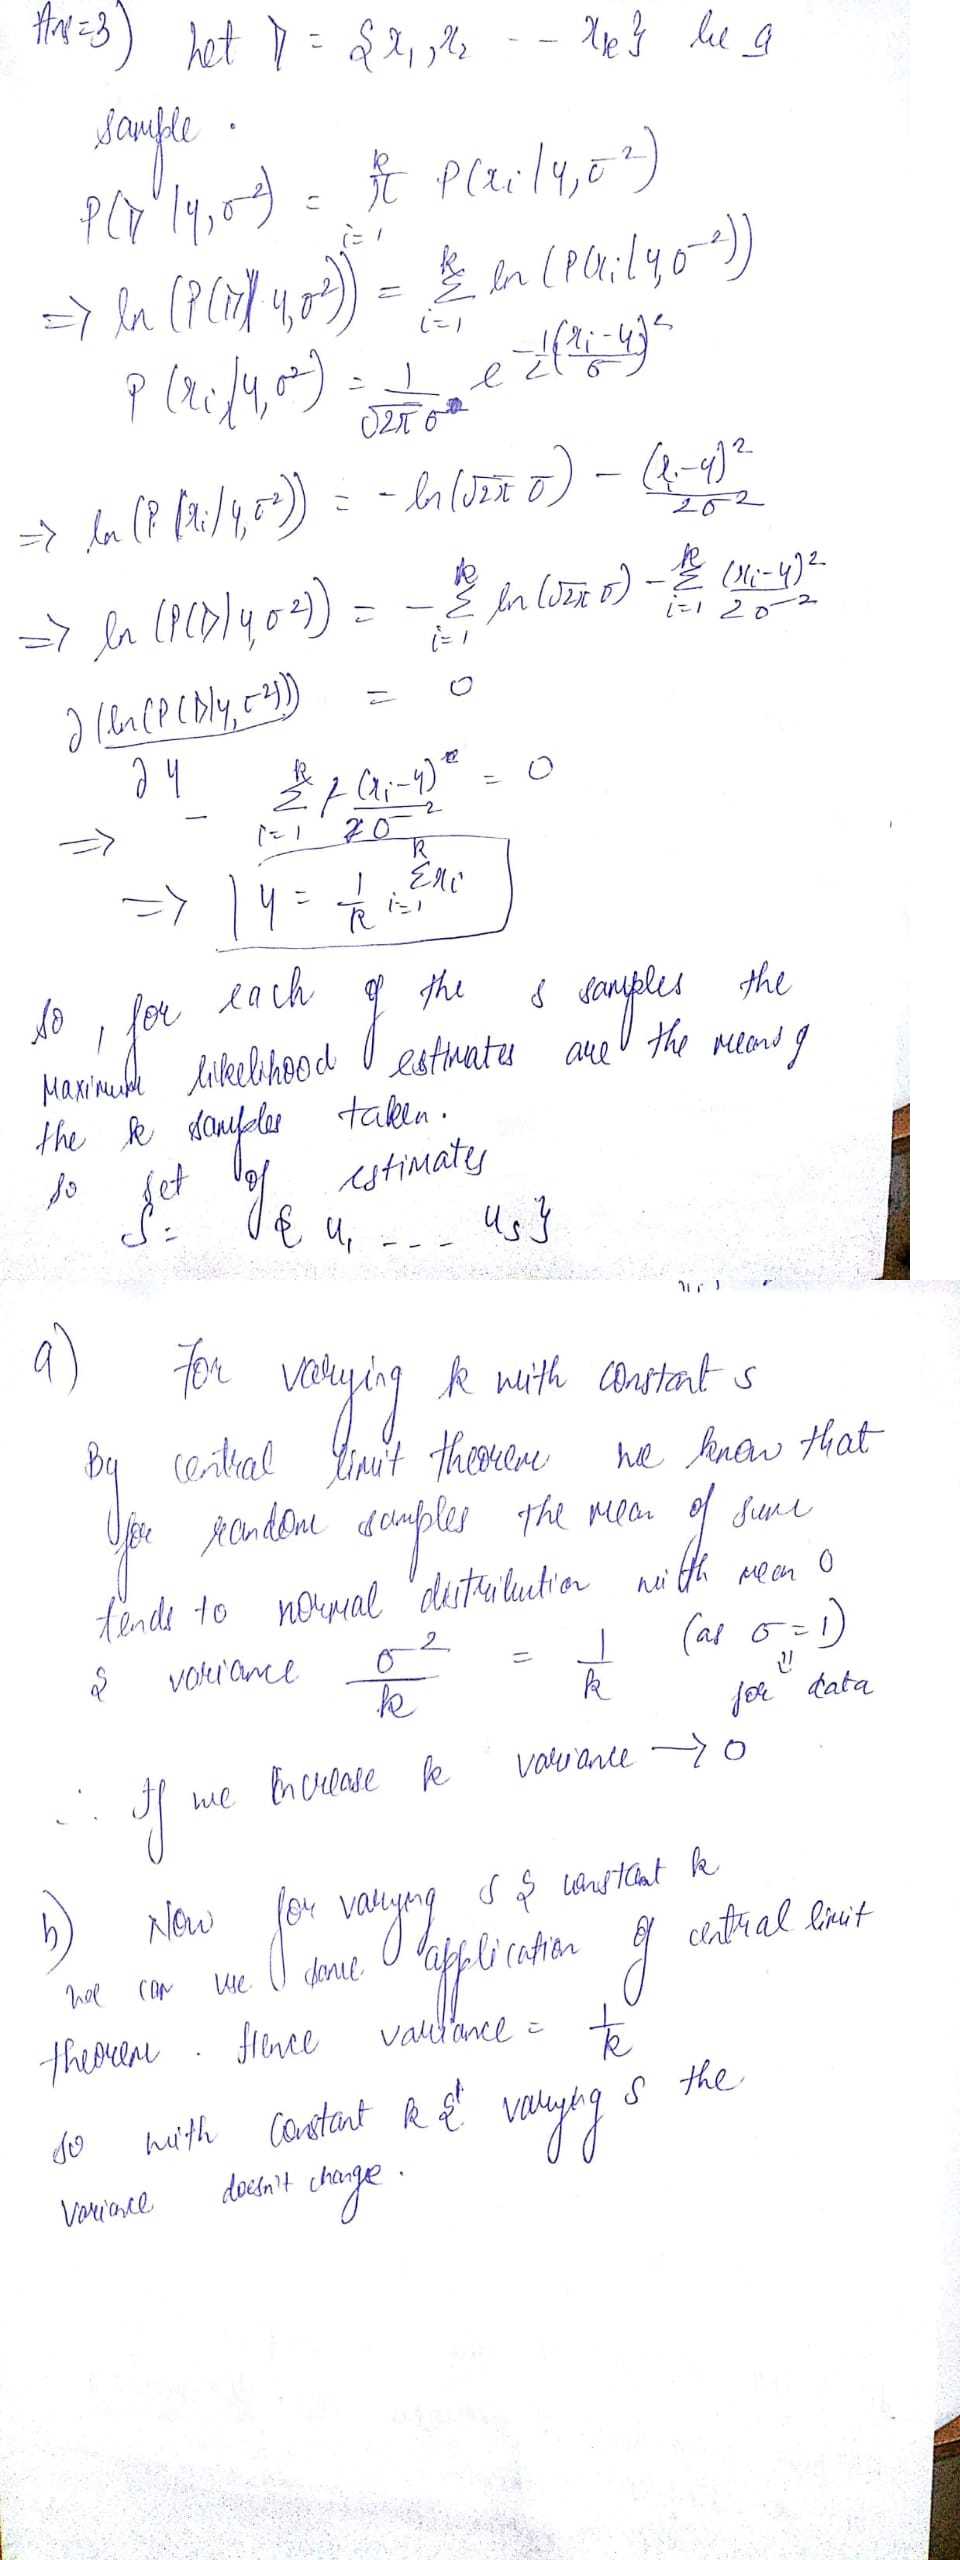 Ans=3) Let D = {x₁, x₂ - - xₖ} be a
sample.
P(D|μ,σ²) = ᵏπᵢ₌₁ P(xᵢ|μ,σ²)
=> ln(P(D|μ,σ²)) = ᵏΣᵢ₌₁ ln(P(xᵢ|μ,σ²))
P(xᵢ|μ,σ²) = 1/(√2π σ) e^(-1/2((xᵢ-μ)/σ)²)
=> ln(P(xᵢ|μ,σ²)) = -ln(√2π σ) - (xᵢ-μ)²/2σ²
=> ln(P(D|μ,σ²)) = -ᵏΣᵢ₌₁ ln(√2π σ) - ᵏΣᵢ₌₁ (xᵢ-μ)²/2σ²
∂(ln(P(D|μ,σ²)))/∂μ = 0
=> - ᵏΣᵢ₌₁ 2(xᵢ-μ)/2σ² = 0
=> μ = 1/k ᵏΣᵢ₌₁ xᵢ
So, for each of the s samples the
Maximum likelihood estimates are the means of
the k samples taken.
So set of estimates
S = { μ₁ - - - μₛ }
a) For varying k with constant s
By central limit theorem we know that
for random samples the mean of sum
tends to normal distribution with mean 0
& variance σ²/k = 1/k (as σ = 1)
for data
∴ If we increase k variance → 0
b) Now for varying s & constant k
we can use same application of central limit
theorem. Hence variance = 1/k
so with constant k & varying s the
variance doesn't change.